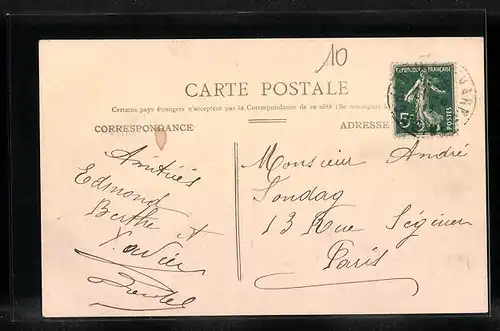 10
CARTE POSTALE
Certains pays étrangers n'acceptent pas la Correspondance de ce côté (Se renseigner
CORRESPONDANCE
ADRESSE
REPUBLIQUE FRANÇAISE
5c
POSTES
Amitiés
Edmond
Berthe et
Xavier
Monsieur André
Sondag
13 Rue Séguier
Paris